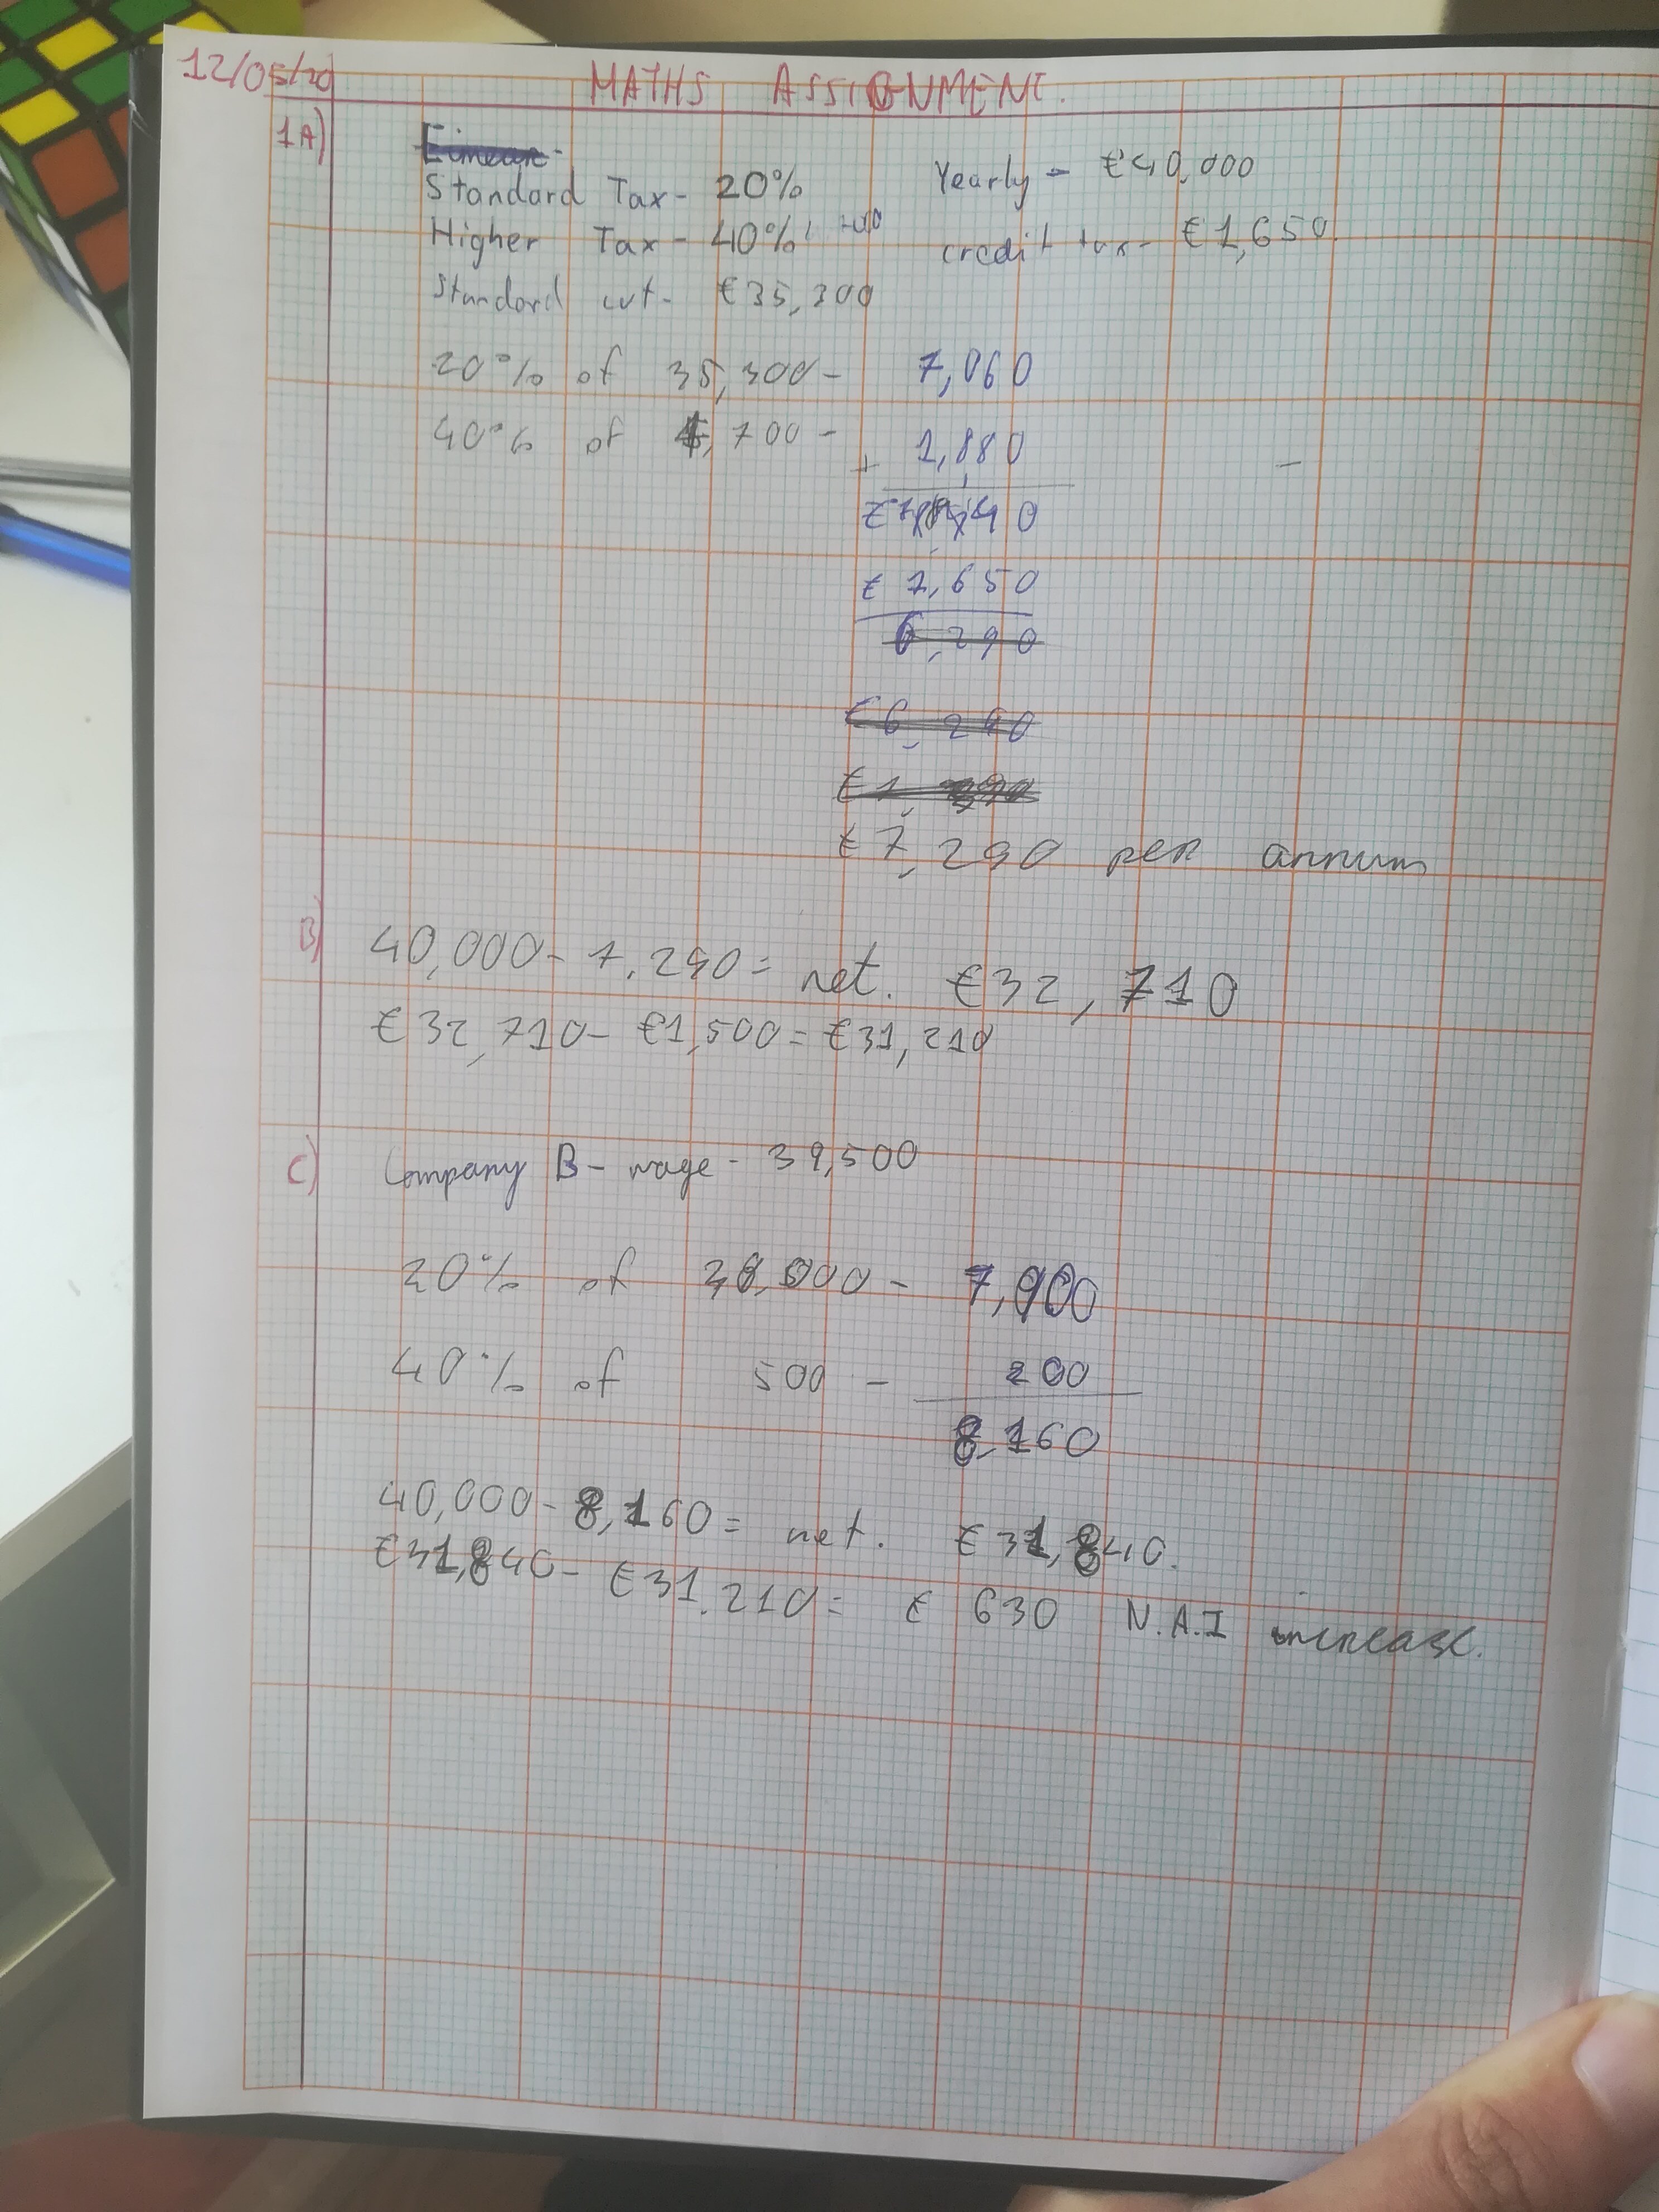 12/05/20
MATHS ASSIGNMENT.
1A)
Eimear -
Standard Tax - 20% Yearly - €40,000
Higher Tax - 40% credit tax - €1,650
Standard cut - €35,300
20% of 35,300 - 7,060
40% of 4,700 - + 1,880
€ 1,650
6,290
€6,290
€7,290 per annum
B)
40,000 - 7,290 = net. €32,710
€32,710 - €1,500 = €31,210
C) Company B - wage - 39,500
20% of - 7,900
40% of 500 - 200
8,160
40,000 - 8,160 = net. €31,840.
€31,840 - €31,210 = € 630 N.A.I increase.